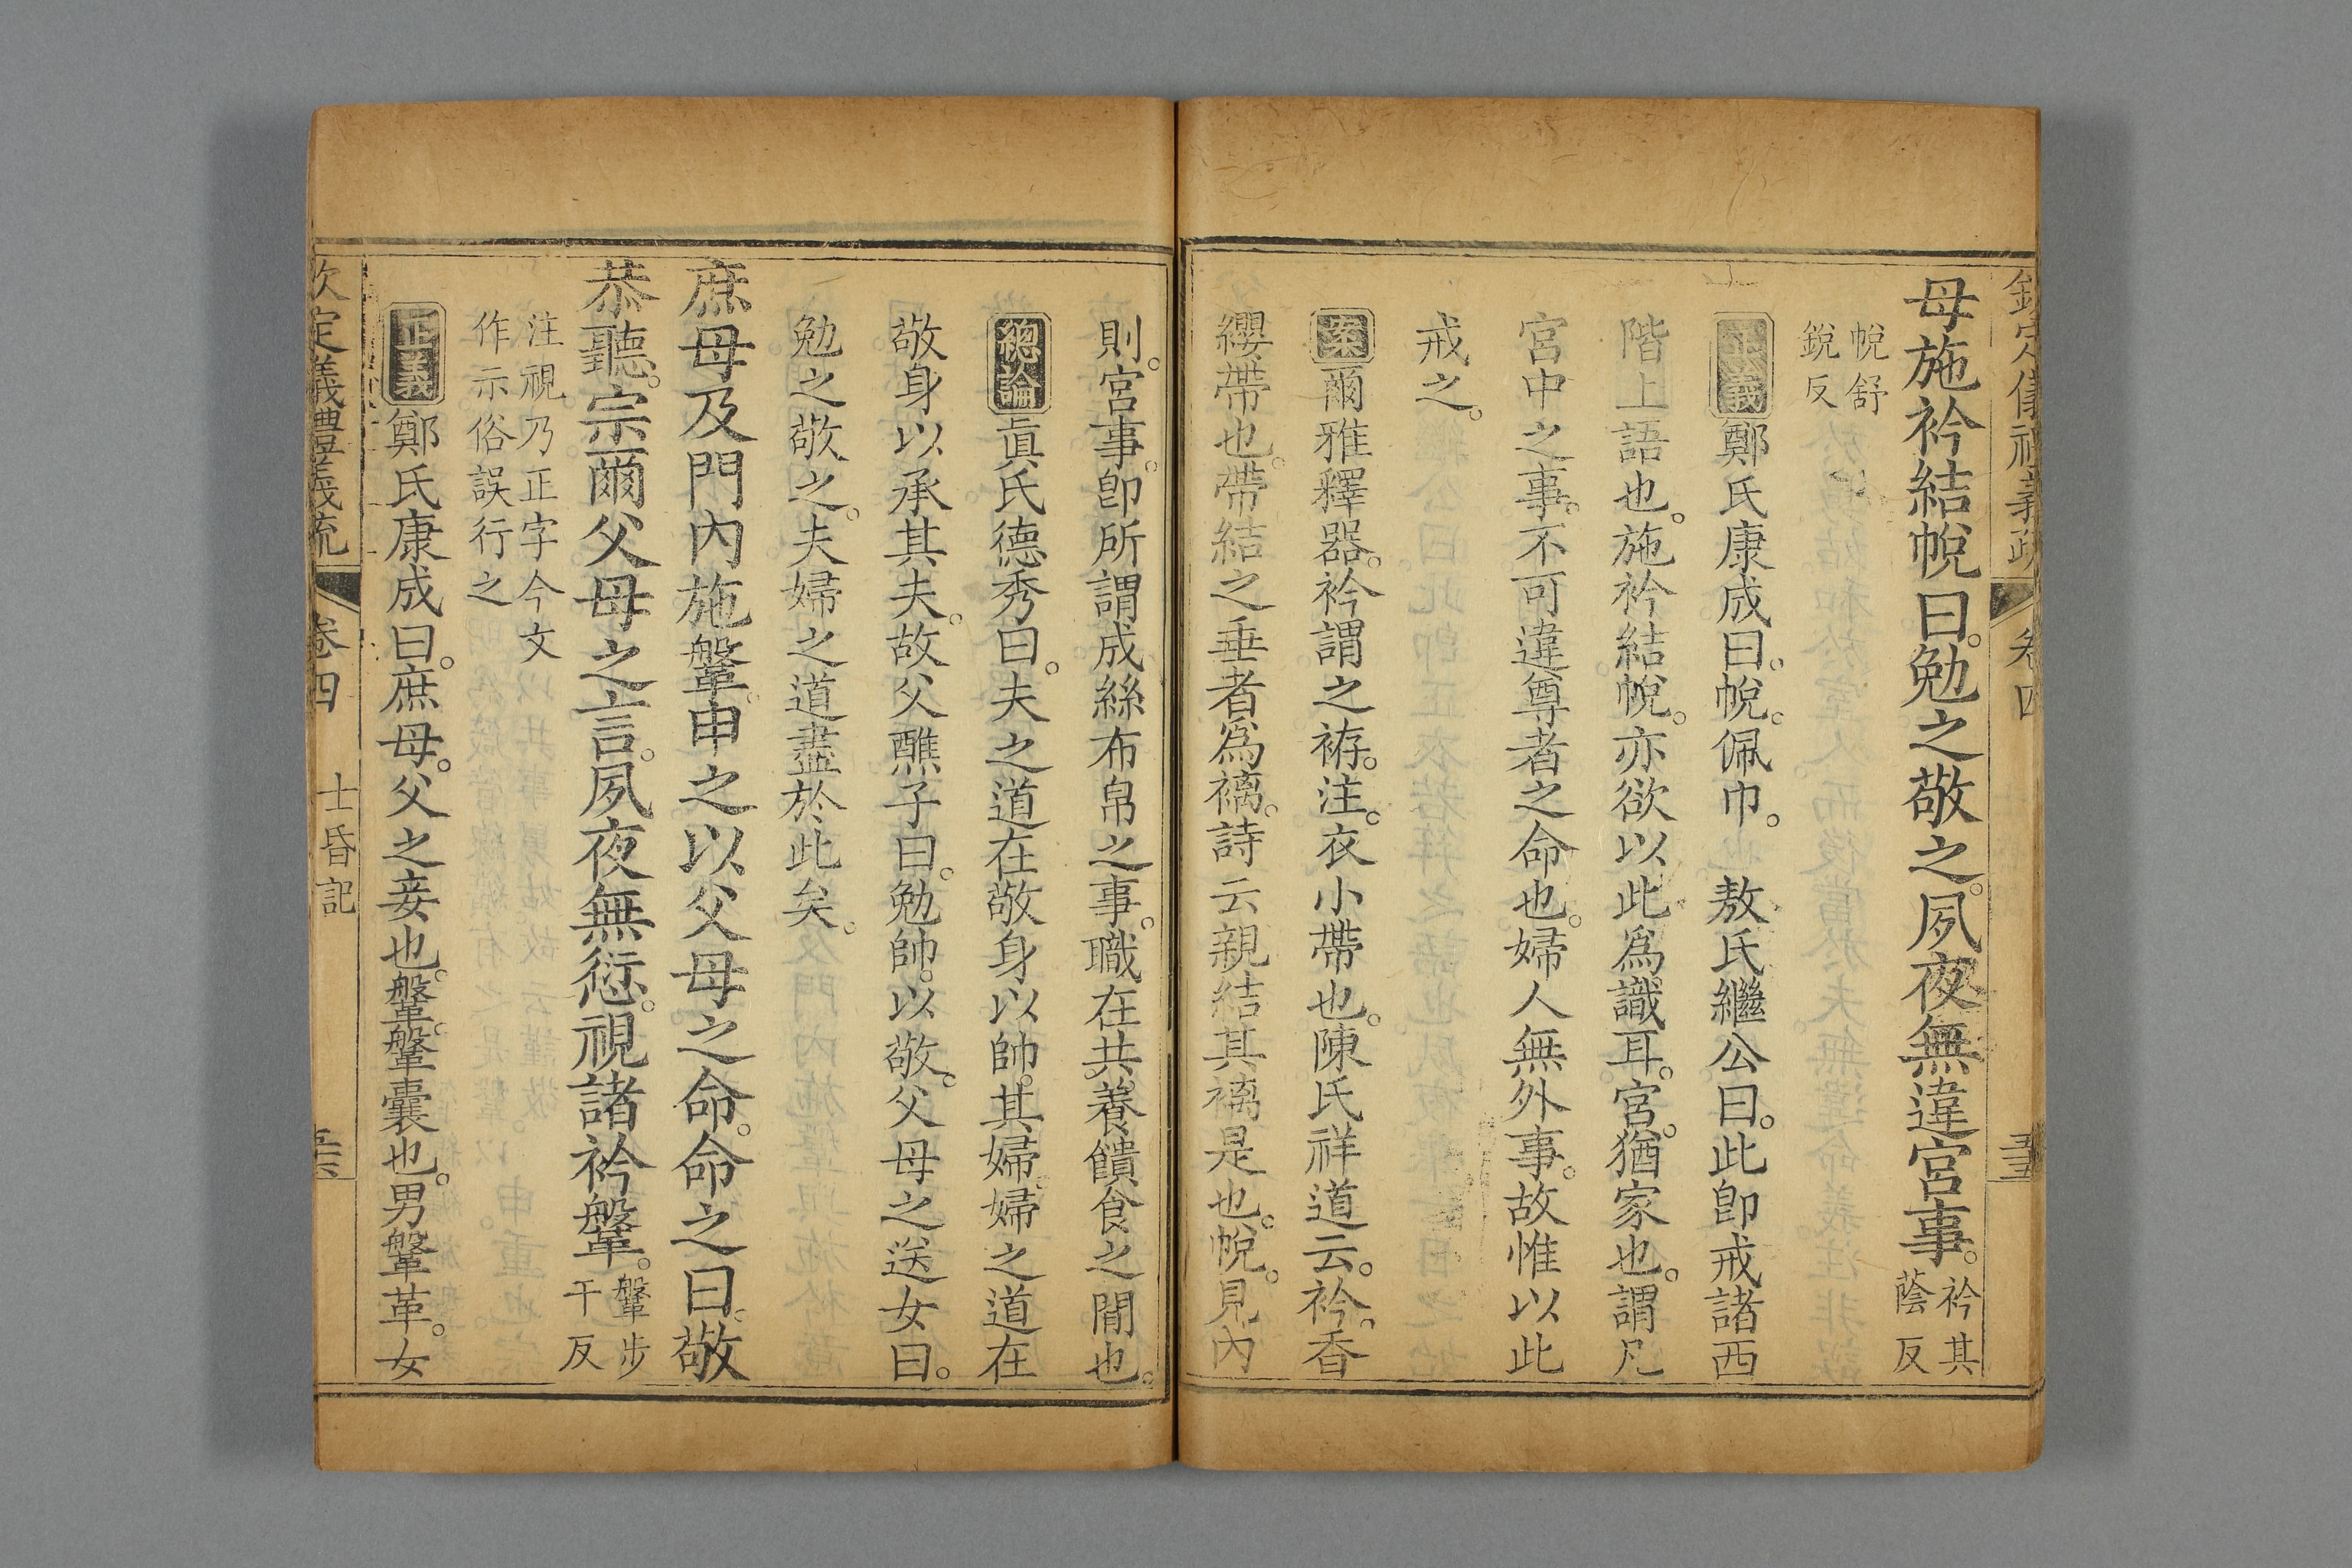 欽定儀禮義疏 卷四 五五
母施衿結帨曰。勉之敬之。夙夜無違宮事。衿其蔭反
帨舒銳反
正義鄭氏康成曰。帨。佩巾。 敖氏繼公曰。此卽戒諸西
階上語也。施衿結帨。亦欲以此爲識耳。宮。猶家也。謂凡
宮中之事。不可違尊者之命也。婦人無外事。故惟以此
戒之。
案爾雅釋器。衿謂之袸。注。衣小帶也。陳氏祥道云。衿。香
纓帶也。帶結之垂者爲褵。詩云親結其褵是也。帨。見內
則。宮事。卽所謂成絲布帛之事。職在共養饋食之閒也。
總論眞氏德秀曰。夫之道在敬身以帥其婦。婦之道在
敬身以承其夫。故父醮子曰。勉帥。以敬。父母之送女曰。
勉之敬之。夫婦之道盡於此矣。
庶母及門內施鞶。申之以父母之命。命之曰。敬
恭聽。宗爾父母之言。夙夜無愆。視諸衿鞶。鞶步干反
注視乃正字今文
作示俗誤行之
正義鄭氏康成曰。庶母。父之妾也。鞶。鞶囊也。男鞶革。女
欽定儀禮義疏 卷四 士昏記 五六